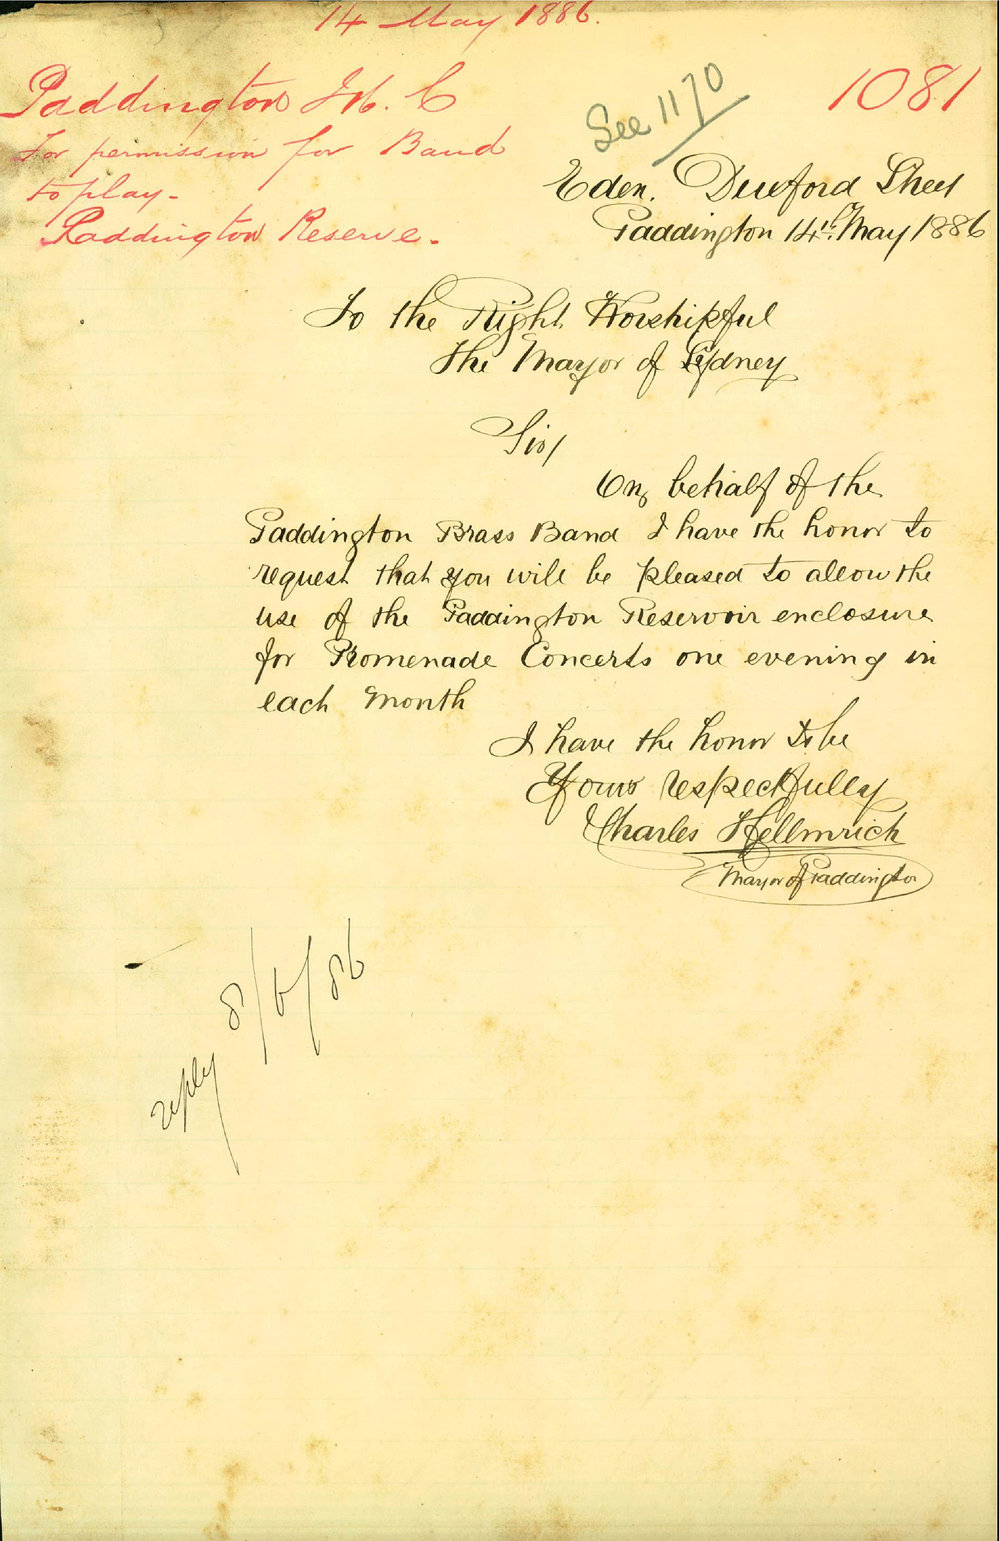 14 May 1886.
1081
Paddington M. C
For permission for Band
to play -
Paddington Reserve. -
See 1170
Eden. Duxford Street
Paddington 14th May 1886
To the Right Worshipful
The Mayor of Sydney
Sir/
On behalf of the
Paddington Brass Band I have the honor to
request that you will be pleased to allow the
use of the Paddington Reservoir enclosure
for Promenade Concerts one evening in
each month
I have the honor to be
Yours respectfully
Charles Hellmrich
Mayor of Paddington
reply 8/6/86